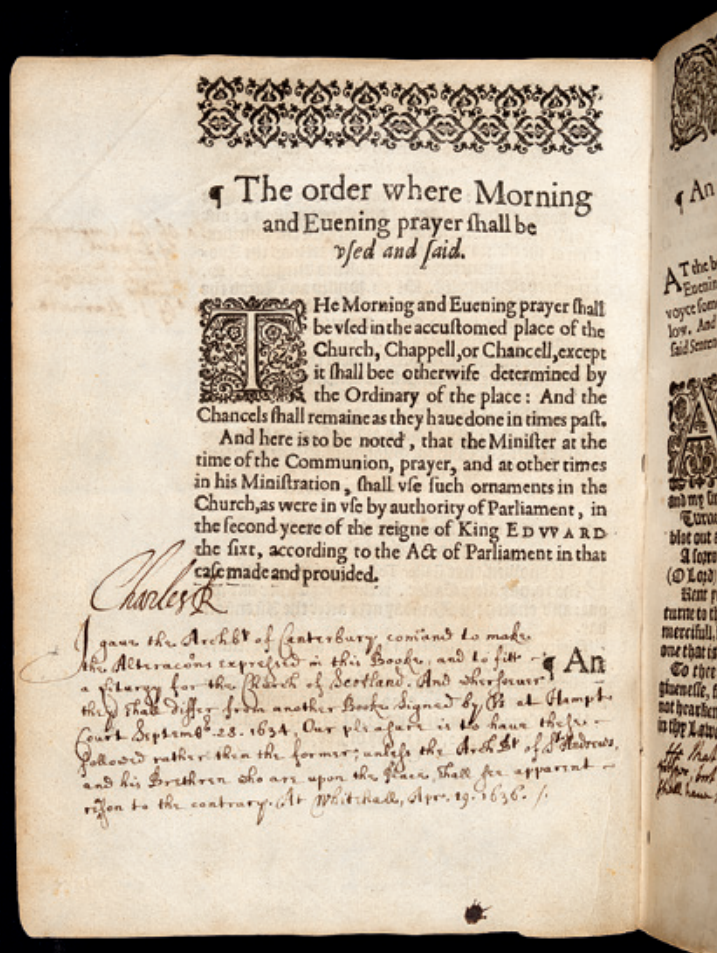 ¶ The order where Morning
and Euening prayer ſhall be
vſed and ſaid.
THe Morning and Euening prayer ſhall
be vſed in the accuſtomed place of the
Church, Chappell, or Chancell, except
it ſhall bee otherwiſe determined by
the Ordinary of the place: And the
Chancels ſhall remaine as they haue done in times paſt.
And here is to be noted, that the Miniſter at the
time of the Communion, prayer, and at other times
in his Miniſtration, ſhall vſe ſuch ornaments in the
Church, as were in vſe by authority of Parliament, in
the ſecond yeere of the reigne of King EDVVARD
the ſixt, according to the Act of Parliament in that
caſe made and prouided.
Charles R
I gaue the Archbp of Canterbury com̄and to make
the Alteracōns expressed in this Booke, and to fitt
a Liturgy for the Church of Scotland. And wheresoeuer
they shall differ from another Booke signed by Us at Hampt.
Court Septemb. 28. 1634. Our pleasure is to haue these
followed rather then the former; unless the Archbp of St Andrews,
and his Brethren who are upon the place, shall see apparent
reason to the contrary. At Whitehall, Apr. 19. 1636.
¶ An
¶ An
AT the b
Euenin
voyce ſom
low. And
ſaid Senten
A
and my ſin
Turne
blot out a
A ſorro
(O Lord
Rent y
turne to th
mercifull,
one that is
To thee
giueneſſe, f
not hearken
in thy Lawe